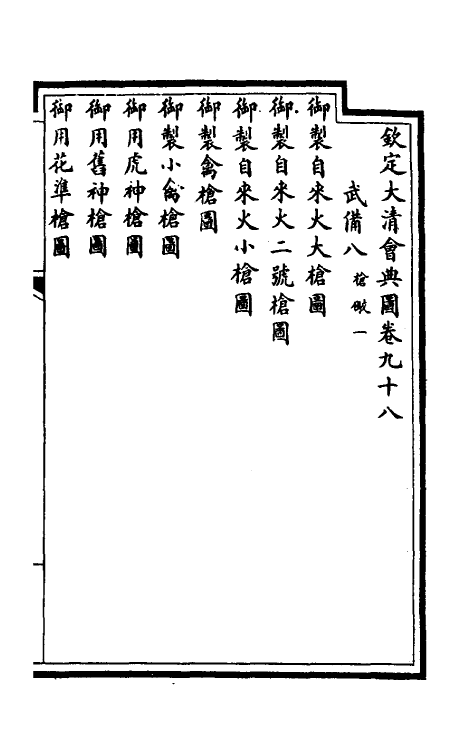 欽定大清會典圖卷九十八
武備八 槍礮一
御製自來火大槍圖
御製自來火二號槍圖
御製自來火小槍圖
御製禽槍圖
御製小禽槍圖
御用虎神槍圖
御用舊神槍圖
御用花準槍圖